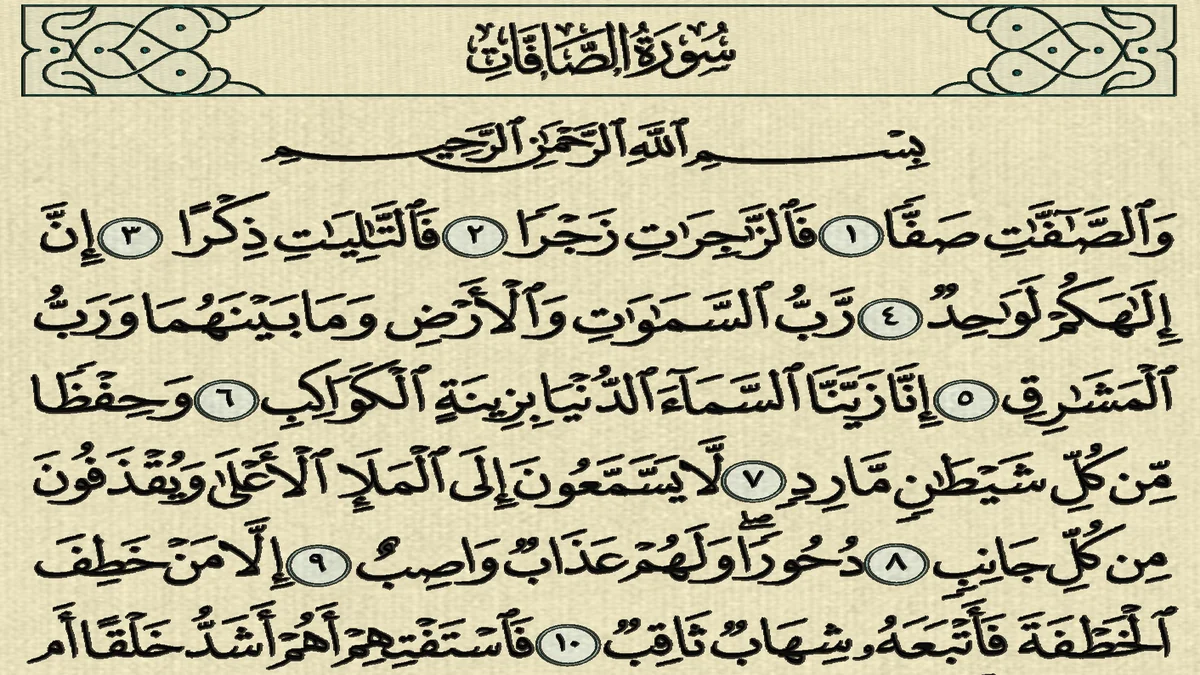 سُورَةُ الصَّافَّاتِ
بِسْمِ ٱللَّهِ ٱلرَّحْمَٰنِ ٱلرَّحِيمِ
وَٱلصَّـٰٓفَّـٰتِ صَفًّا ١ فَٱلزَّٰجِرَٰتِ زَجْرًا ٢ فَٱلتَّـٰلِيَـٰتِ ذِكْرًا ٣ إِنَّ
إِلَـٰهَكُمْ لَوَٰحِدٌ ٤ رَّبُّ ٱلسَّمَـٰوَٰتِ وَٱلْأَرْضِ وَمَا بَيْنَهُمَا وَرَبُّ
ٱلْمَشَـٰرِقِ ٥ إِنَّا زَيَّنَّا ٱلسَّمَآءَ ٱلدُّنْيَا بِزِينَةٍ ٱلْكَوَاكِبِ ٦ وَحِفْظًا
مِّن كُلِّ شَيْطَـٰنٍ مَّارِدٍ ٧ لَّا يَسَّمَّعُونَ إِلَى ٱلْمَلَإِ ٱلْأَعْلَىٰ وَيُقْذَفُونَ
مِن كُلِّ جَانِبٍ ٨ دُحُورًا ۖ وَلَهُمْ عَذَابٌ وَاصِبٌ ٩ إِلَّا مَنْ خَطِفَ
ٱلْخَطْفَةَ فَأَتْبَعَهُۥ شِهَابٌ ثَاقِبٌ ١٠ فَٱسْتَفْتِهِمْ أَهُمْ أَشَدُّ خَلْقًا أَم